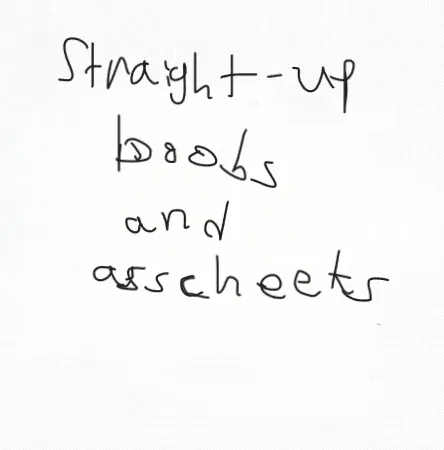 Straight-up
boobs
and
asscheeks